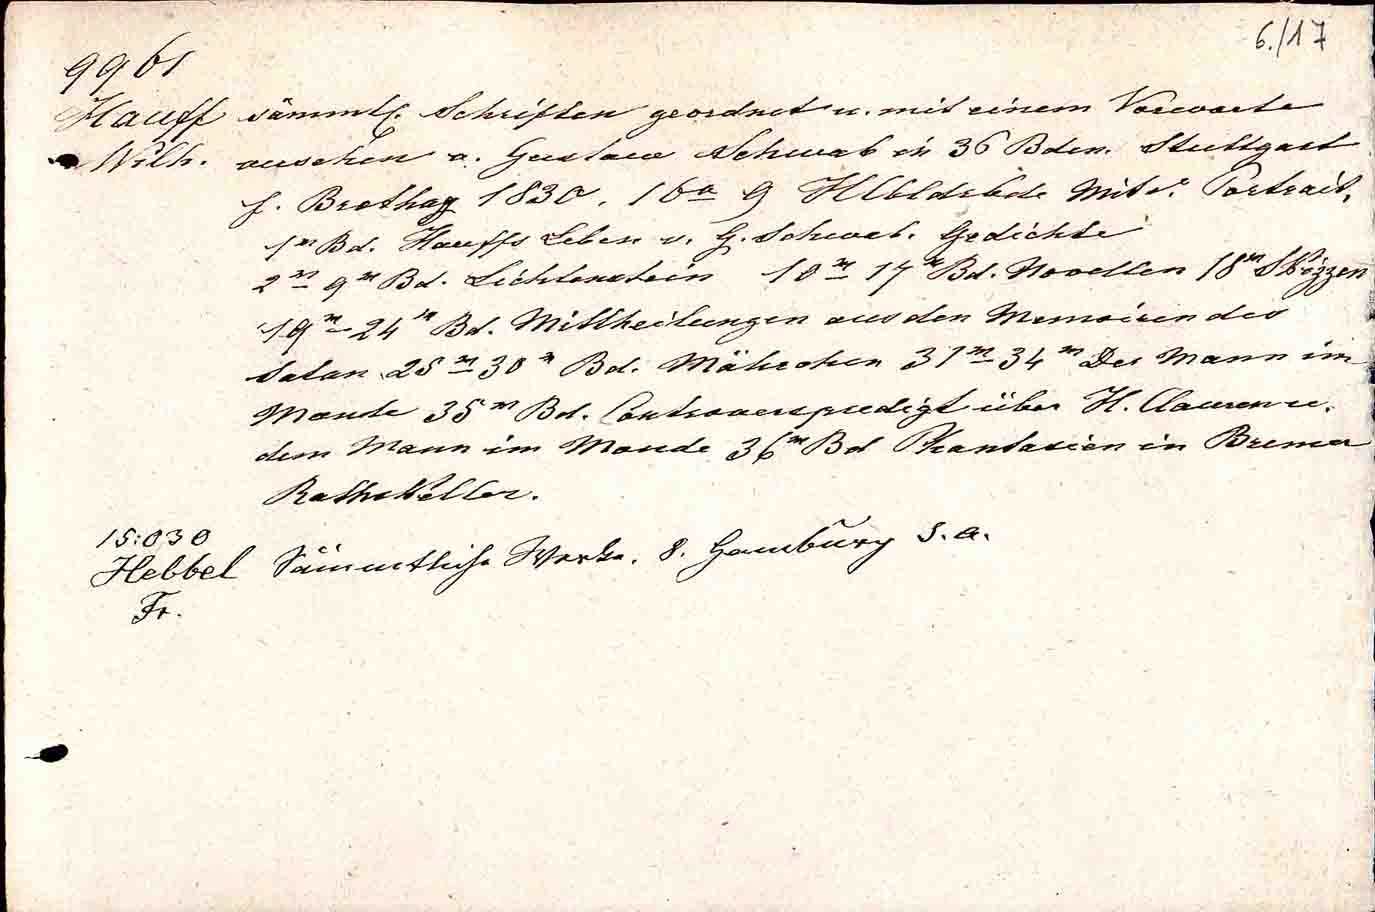 6./17
9961
Hauff sämmtl. Schriften geordnet u. mit einem Vorworte
Wilh. versehen v. Gustav Schwab in 36 Bden. Stuttgart
f. Brodhag 1830. 16° 9 Hlbldrbde Mit s. Portrait.
1r Bd. Hauffs Leben v. G. Schwab. Gedichte
2r – 9r Bd. Lichtenstein 10r – 17r Bd. Novellen 18r Skizzen
19r – 24r Bd. Mittheilungen aus den Memoiren des
Satan 25r – 30r Bd. Mährchen 31r – 34r Der Mann im
Monde 35r Bd. Controverspredigt über H. Clauren u.
dem Mann im Monde 36r Bd Phantasien in Bremer
Rathskeller.
15:030
Hebbel Sämmtliche Werke. 8. Hamburg s.a.
Fr.